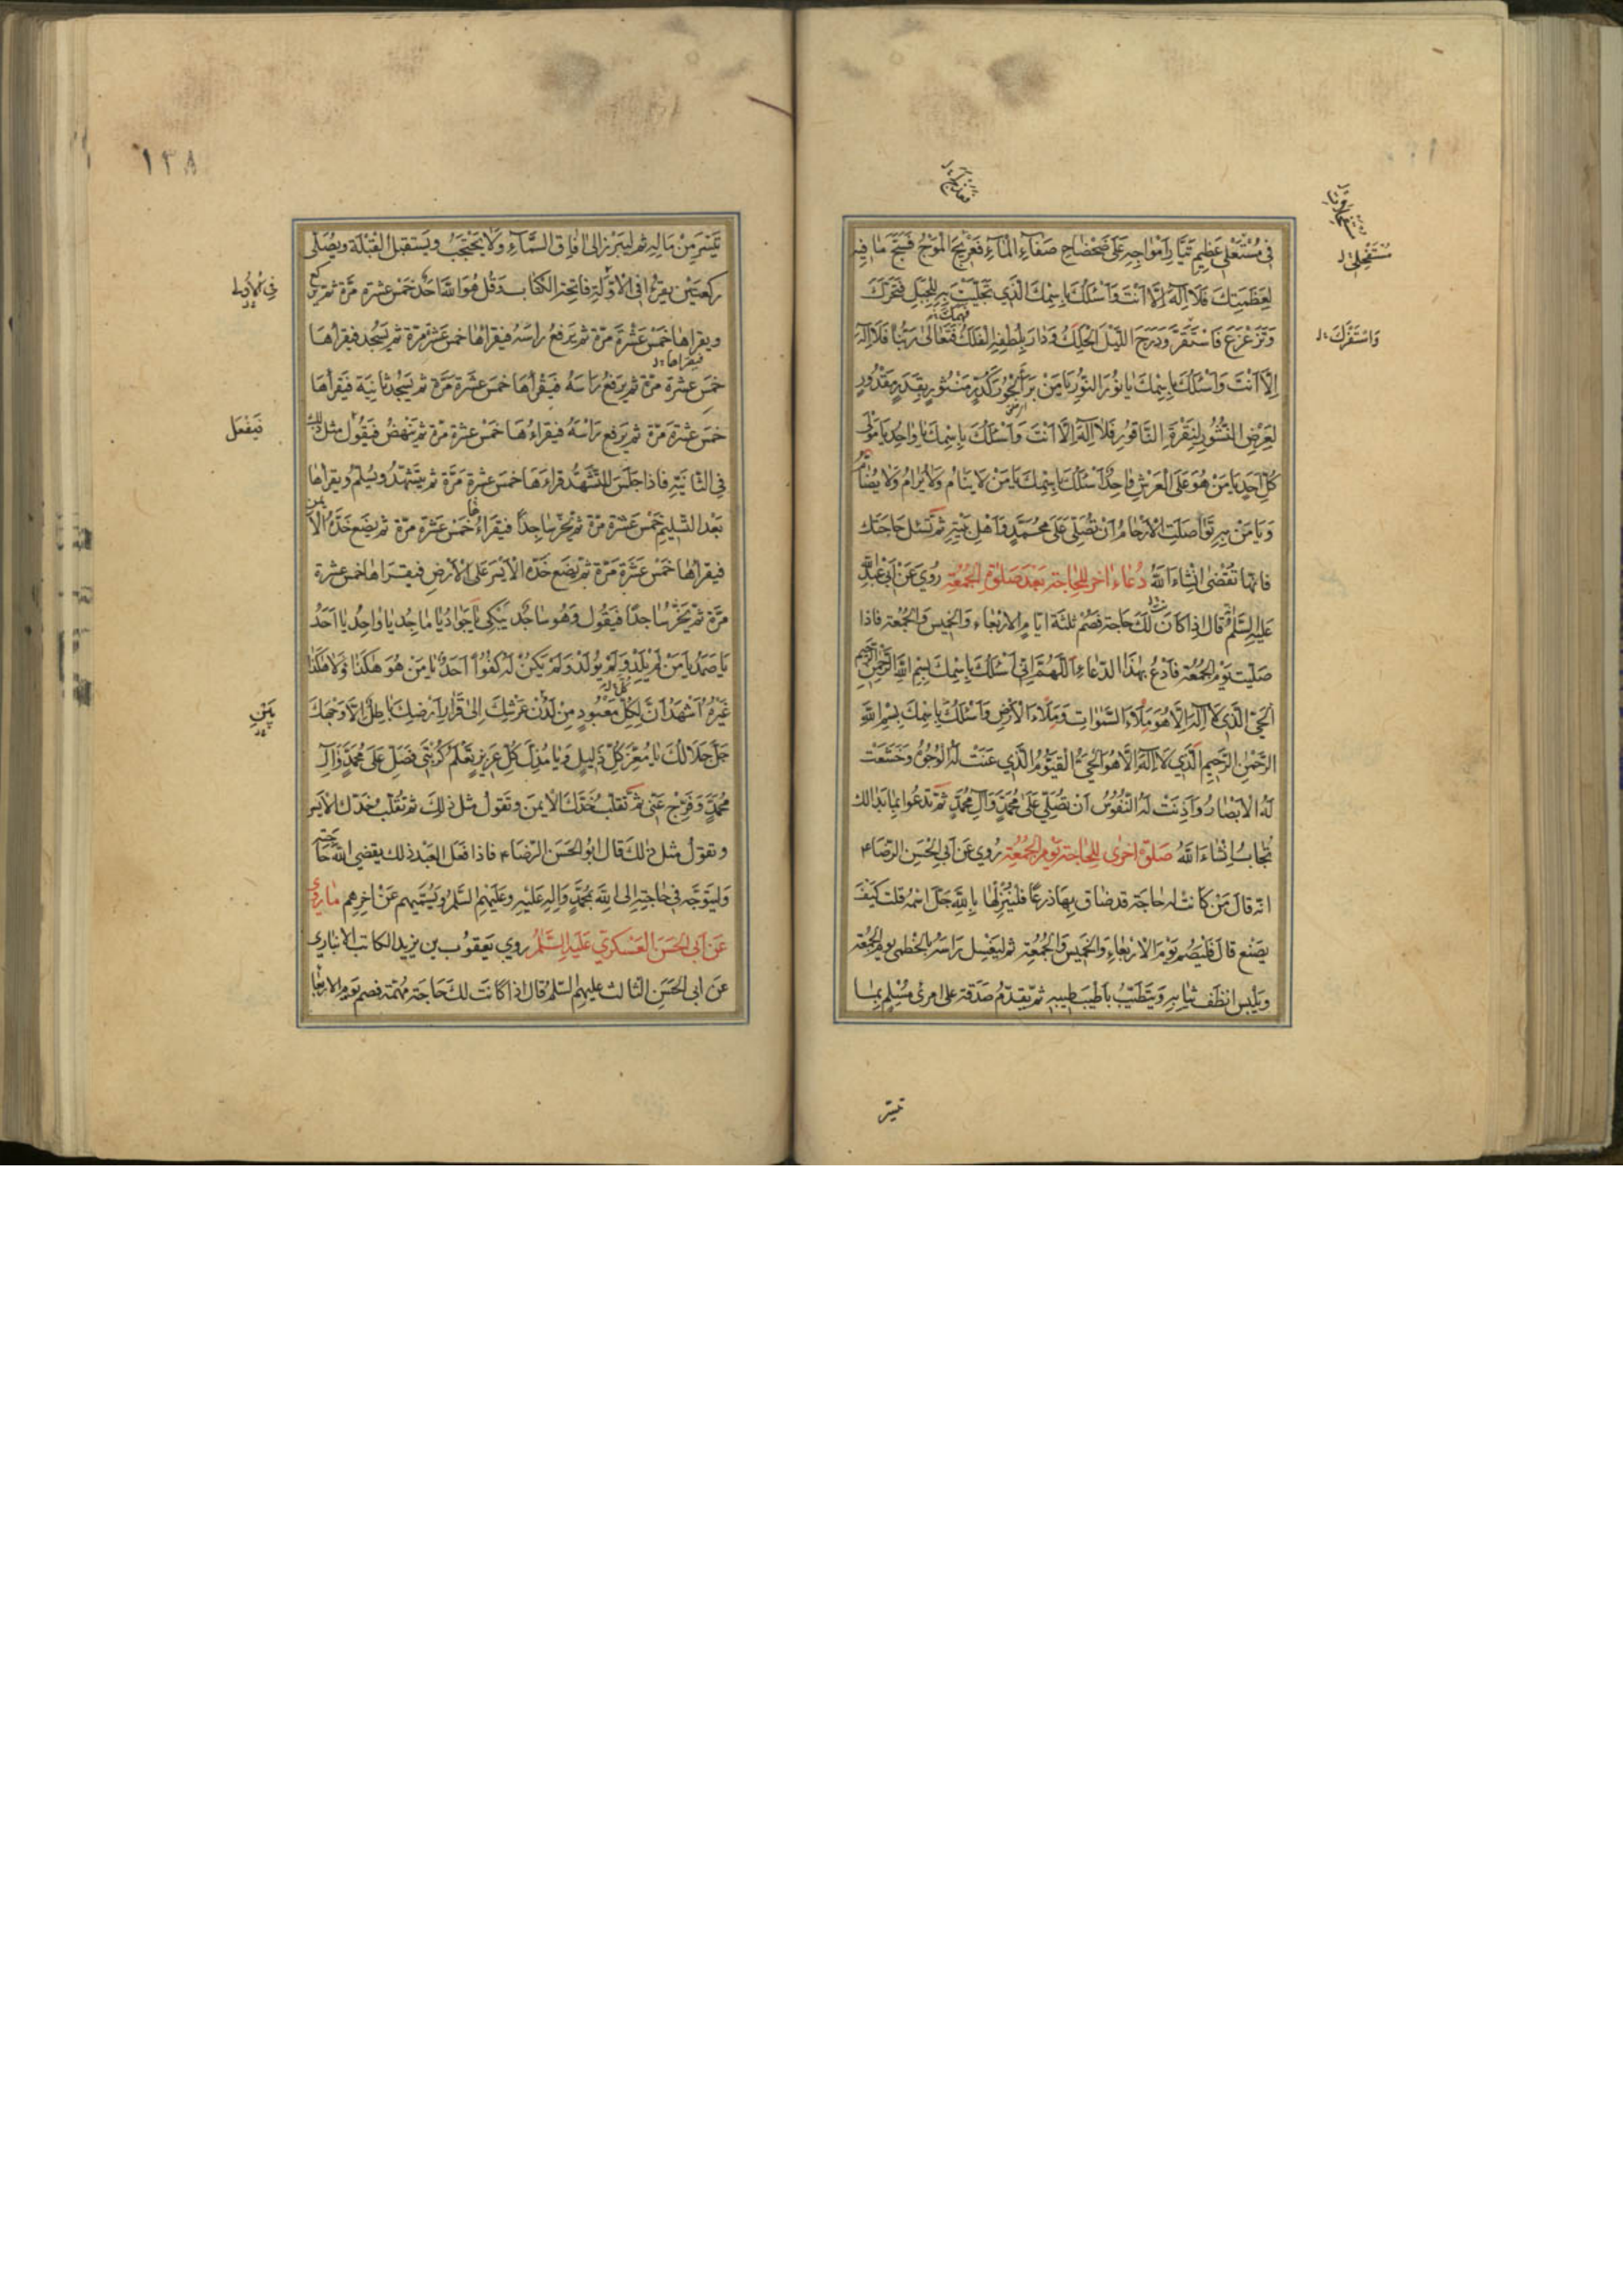 في مُسْتَفْحَلِ عَظيمِ تَيَّارِ اَمْواجِهِ عَلىٰ ضَحْضاحِ صَفاءِ الْمٰاءِ فَعَزِيجَ الْمَوْجُ فَسَبَّحَ مٰا فيهِ
لِعَظَمَتِكَ فَلٰا اِلٰهَ اِلَّا اَنْتَ وَاَسْئَلُكَ بِاسْمِكَ الَّذي تَجَلَّيْتَ بِهِ لِلْجَبَلِ فَتَحَرَّكَ
وَتَزَعْزَعَ فَاسْتَقَرَّ وَدَرَجَ اللَّيْلُ الْحَلِكُ وَدٰارَ بِلُطْفِهِ الْفَلَكُ فَتَعٰالىٰ رَبُّنٰا فَلٰا اِلٰهَ
اِلَّا اَنْتَ وَاَسْئَلُكَ بِاسْمِكَ يٰا نُورَ النُّورِ يٰا مَنْ بَرَأَ الْحُورَ كَدُرٍّ مَنْثُورٍ بِقَدَرٍ مَقْدُورٍ
لِعَرْضِ النُّشُورِ لِنَقْرَةِ النّٰاقُورِ فَلٰا اِلٰهَ اِلَّا اَنْتَ وَاَسْئَلُكَ بِاسْمِكَ يٰا وٰاحِدُ يٰا مَوْلىٰ
كُلِّ اَحَدٍ يٰا مَنْ هُوَ عَلَى الْعَرْشِ وٰاحِدٌ اَسْئَلُكَ بِاسْمِكَ يٰا مَنْ لٰا يَنٰامُ وَلٰا يُرٰامُ وَلٰا يُضٰامُ
وَيٰا مَنْ بِهِ تَوٰاصَلَتِ الْاَرْحٰامُ اَنْ تُصَلِّيَ عَلىٰ مُحَمَّدٍ وَاَهْلِ بَيْتِهِ ثُمَّ تَسْئَلُ حٰاجَتَكَ
فانّها تقضى انشاء الله دُعاء اٰخر للحاجة بَعْدَ صَلوٰة الجُمُعَة رُوي عَن اَبي عَبدالله
عليه السّلم قال اذا كانَ لكَ حاجة فصُم ثلثة ايّام الاربعاء والخميس والجُمُعة فاذا
صلّيت يَوم الجُمُعة فادعُ بهذا الدّعاء اَللّٰهُمَّ اِنّي اَسْئَلُكَ بِاسْمِكَ بِسْمِ اللهِ الرَّحْمٰنِ الرَّحيمِ
الْحَيِّ الَّذي لٰا اِلٰهَ اِلّٰا هُوَ مِلْاَءَ السَّمٰوٰاتِ وَمِلْاَءَ الْاَرْضِ وَاَسْئَلُكَ بِاسْمِكَ بِسْمِ اللهِ
الرَّحْمٰنِ الرَّحيمِ الَّذي لٰا اِلٰهَ اِلّٰا هُوَ الْحَيُّ الْقَيُّومُ الَّذي عَنَتْ لَهُ الْوُجُوهُ وَخَشَعَتْ
لَهُ الْاَبْصٰارُ وَاَذِنَتْ لَهُ النُّفُوسُ اَنْ تُصَلِّيَ عَلىٰ مُحَمَّدٍ وَاٰلِ مُحَمَّدٍ ثمّ تدعُوا بمابدالك
تُجابُ انشاء الله صَلوٰة اُخرى لِلحاجة يَوم الجُمُعة رُوي عَن اَبي الحسن الرّضاء
انّه قال مَن كانت له حاجة قد ضاق بها ذرعًا فلينزلها بالله جلّ اسمه قلت كيفَ
يصنع قال فليصُم يَوم الاربعاء والخميس والجُمُعة ثم ليغسل راسه بالخطمي يوم الجمعة
ويلبس انظف ثيابه ويتطيّب باطيب طيبه ثم يقدّم صدقة على امرئ مُسلم بما
مُسْتَفْحِلِ
وَاسْتَفْزَكَ
تيسّر
١٣٨
تيسّر من ماله ثم ليبرز الى اٰفاق السّماء ولا يحتجبُ ويستقبل القبلة ويصلّى
ركعتين يقرءُ في الاوّلة فاتحة الكتاب وقل هو الله احد خمس عشرة مرّة ثم يركع
ويقراها خمس عشرة مرّة ثم يرفع راسه فيقراها خمس عشرة مرّة ثم يسجد فيقراها
خمس عشرة مرّة ثم يرفع راسه فيقراها خمس عشرة مرّة ثم يسجد ثانية فيقراها
خمس عشرة مرّة ثم يرفع راسه فيقراءها خمس عشرة مرّة ثم ينهض فيقول مثل ذلك
في الثانية فاذا جلس للتشهّد قراءها خمس عشرة مرّة ثم يتشهّد ويُسلّم ويقراها
بعد التّسليم خمس عشرة مرّة ثم يخرّ ساجدًا فيقراءها خمس عشرة مرّة ثم يضع خدّه الايمن
فيقراها خمس عشرة مرّة ثم يضع خدّه الايسر على الارض فيقراها خمس عشرة
مرّة ثم يخرّ ساجدًا فيقول وهو ساجد يبكى يٰا جَوٰادُ يٰا مٰاجِدُ يٰا وٰاحِدُ يٰا اَحَدُ
يٰا صَمَدُ يٰا مَنْ لَمْ يَلِدْ وَلَمْ يُولَدْ وَلَمْ يَكُنْ لَهُ كُفُوًا اَحَدٌ يٰا مَنْ هُوَ هٰكَذٰا وَلٰا هٰكَذٰا
غَيْرُهُ اَشْهَدُ اَنَّ كُلَّ مَعْبُودٍ مِنْ لَدُنْ عَرْشِكَ اِلىٰ قَرٰارِ اَرْضِكَ بٰاطِلٌ اِلّٰا وَجْهَكَ
جَلَّ جَلٰالُكَ يٰا مُعِزَّ كُلِّ ذَليلٍ وَيٰا مُذِلَّ كُلِّ عَزيزٍ تَعْلَمُ كُرْبَتي فَصَلِّ عَلىٰ مُحَمَّدٍ وَاٰلِ
مُحَمَّدٍ وَفَرِّجْ عَنّي ثمّ تقلب خدّك الايمن وتقول مثل ذلك ثم تقلب خدّك الايسر
وتقول مثل ذلك قال ابوالحسن الرّضاء فاذا فعل العبد ذلك يقضي الله حاجته
وليتوجّه في حاجته الى الله بمحمّد واٰله عليه وعليهم السّلم ويسمّيهم عن اخرهم ما روي
عَن اَبي الحَسن العَسكري عَليه السَّلم روي يعقوب بن يزيد الكاتب الانباري
عن ابي الحسن الثالث عليهم السّلم قال اذا كانت لك حاجة مهمّة فصم يوم الاربعا
في الاولى
فيقراها
فَيَفْعَل